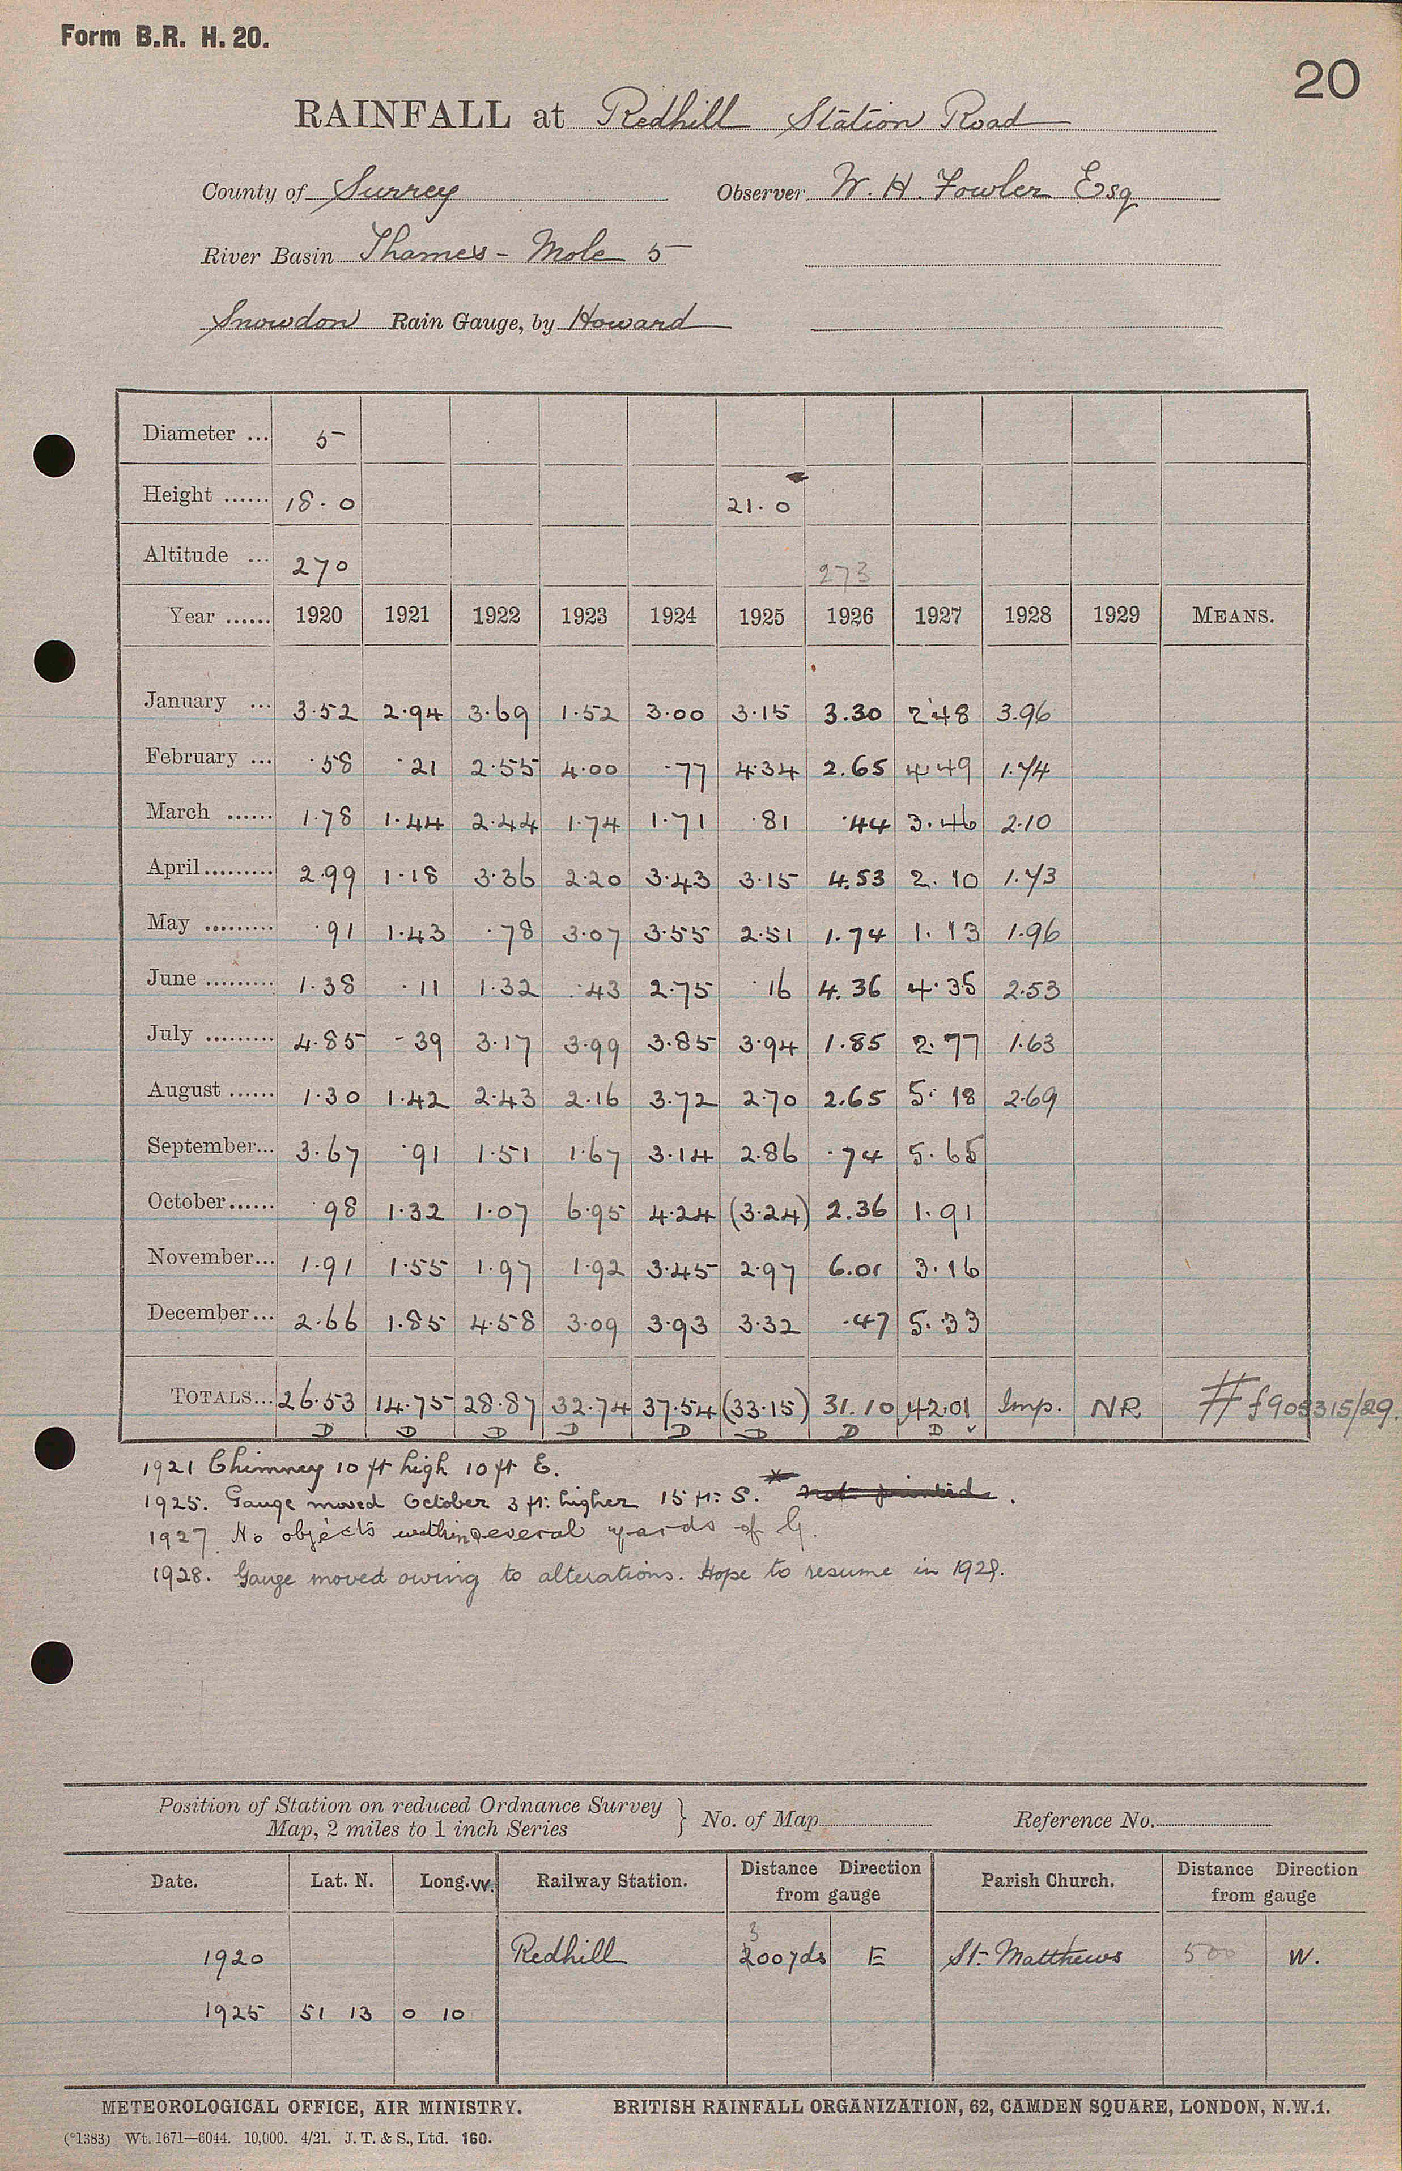 Form B.R. H. 20.
20
RAINFALL at Redhill Station Road
County of Surrey Observer W. H. Fowler Esq
River Basin Thames - Mole 5
Snowdon Rain Gauge, by Howard
Diameter ... 5
Height ...... 18.0 21.0
Altitude ... 270 273
Year ...... 1920 1921 1922 1923 1924 1925 1926 1927 1928 1929 MEANS.
January ... 3.52 2.94 3.69 1.52 3.00 3.15 3.30 2.48 3.96
February ... .58 .21 2.55 4.00 .77 4.34 2.65 4.49 1.74
March ...... 1.78 1.44 2.44 1.74 1.71 .81 .44 3.46 2.10
April ......... 2.99 1.18 3.36 2.20 3.43 3.15 4.53 2.10 1.73
May ......... .91 1.43 .78 3.07 3.55 2.51 1.74 1.13 1.96
June ......... 1.38 .11 1.32 .43 2.75 .16 4.36 4.35 2.53
July ......... 4.85 .39 3.17 3.99 3.85 3.94 1.85 2.77 1.63
August ...... 1.30 1.42 2.43 2.16 3.72 2.70 2.65 5.18 2.69
September... 3.67 .91 1.51 1.67 3.14 2.86 .74 5.65
October...... .98 1.32 1.07 6.95 4.24 (3.24) 2.36 1.91
November... 1.91 1.55 1.97 1.92 3.45 2.97 6.01 3.16
December... 2.66 1.85 4.58 3.09 3.93 3.32 .47 5.33
TOTALS... 26.53 14.75 28.87 32.74 37.54 (33.15) 31.10 42.01 Imp. NR # f905315/29.
D D D D D D D D ✓
1921 Chimney 10 ft high 10 ft E.
1925. Gauge moved October 3 ft: higher 15 ft: S. * not printed.
1927. No objects within several yards of G.
1928. Gauge moved owing to alterations. Hope to resume in 1929.
Position of Station on reduced Ordnance Survey Map, 2 miles to 1 inch Series } No. of Map Reference No.
Date. Lat. N. Long. W. Railway Station. Distance Direction from gauge Parish Church. Distance Direction from gauge
3
1920 Redhill 200yds E St. Matthews 500 W.
1925 51 13 0 10
METEOROLOGICAL OFFICE, AIR MINISTRY. BRITISH RAINFALL ORGANIZATION, 62, CAMDEN SQUARE, LONDON, N.W.1.
(*1383) Wt. 1671—6044. 10,000. 4/21. J. T. & S., Ltd. 160.